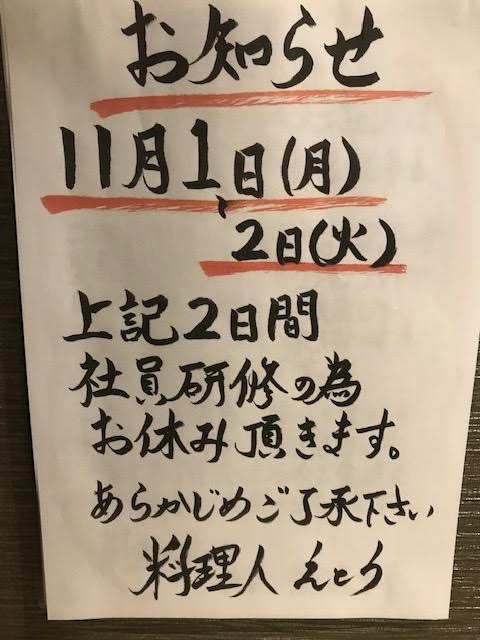 お知らせ
11月1日(月)、
2日(火)
上記2日間
社員研修の為
お休み頂きます。
あらかじめご了承下さい
料理人 えとう